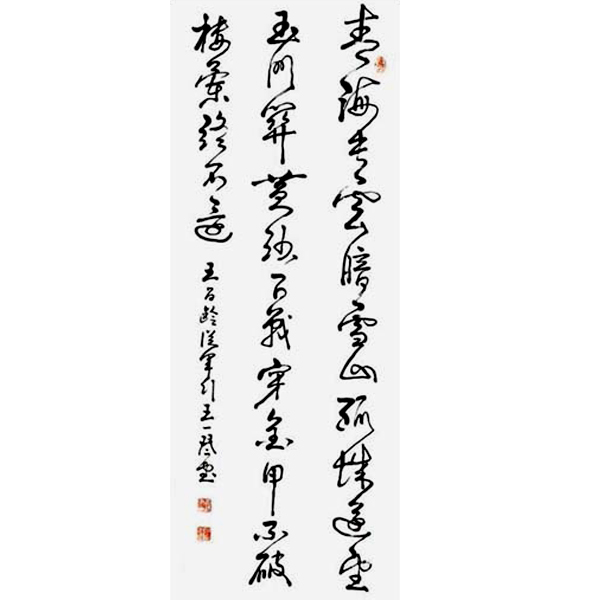 青海長雲暗雪山孤城遥望
玉門關黄沙百戰穿金甲不破
樓蘭終不還
王昌齡從軍行王一書